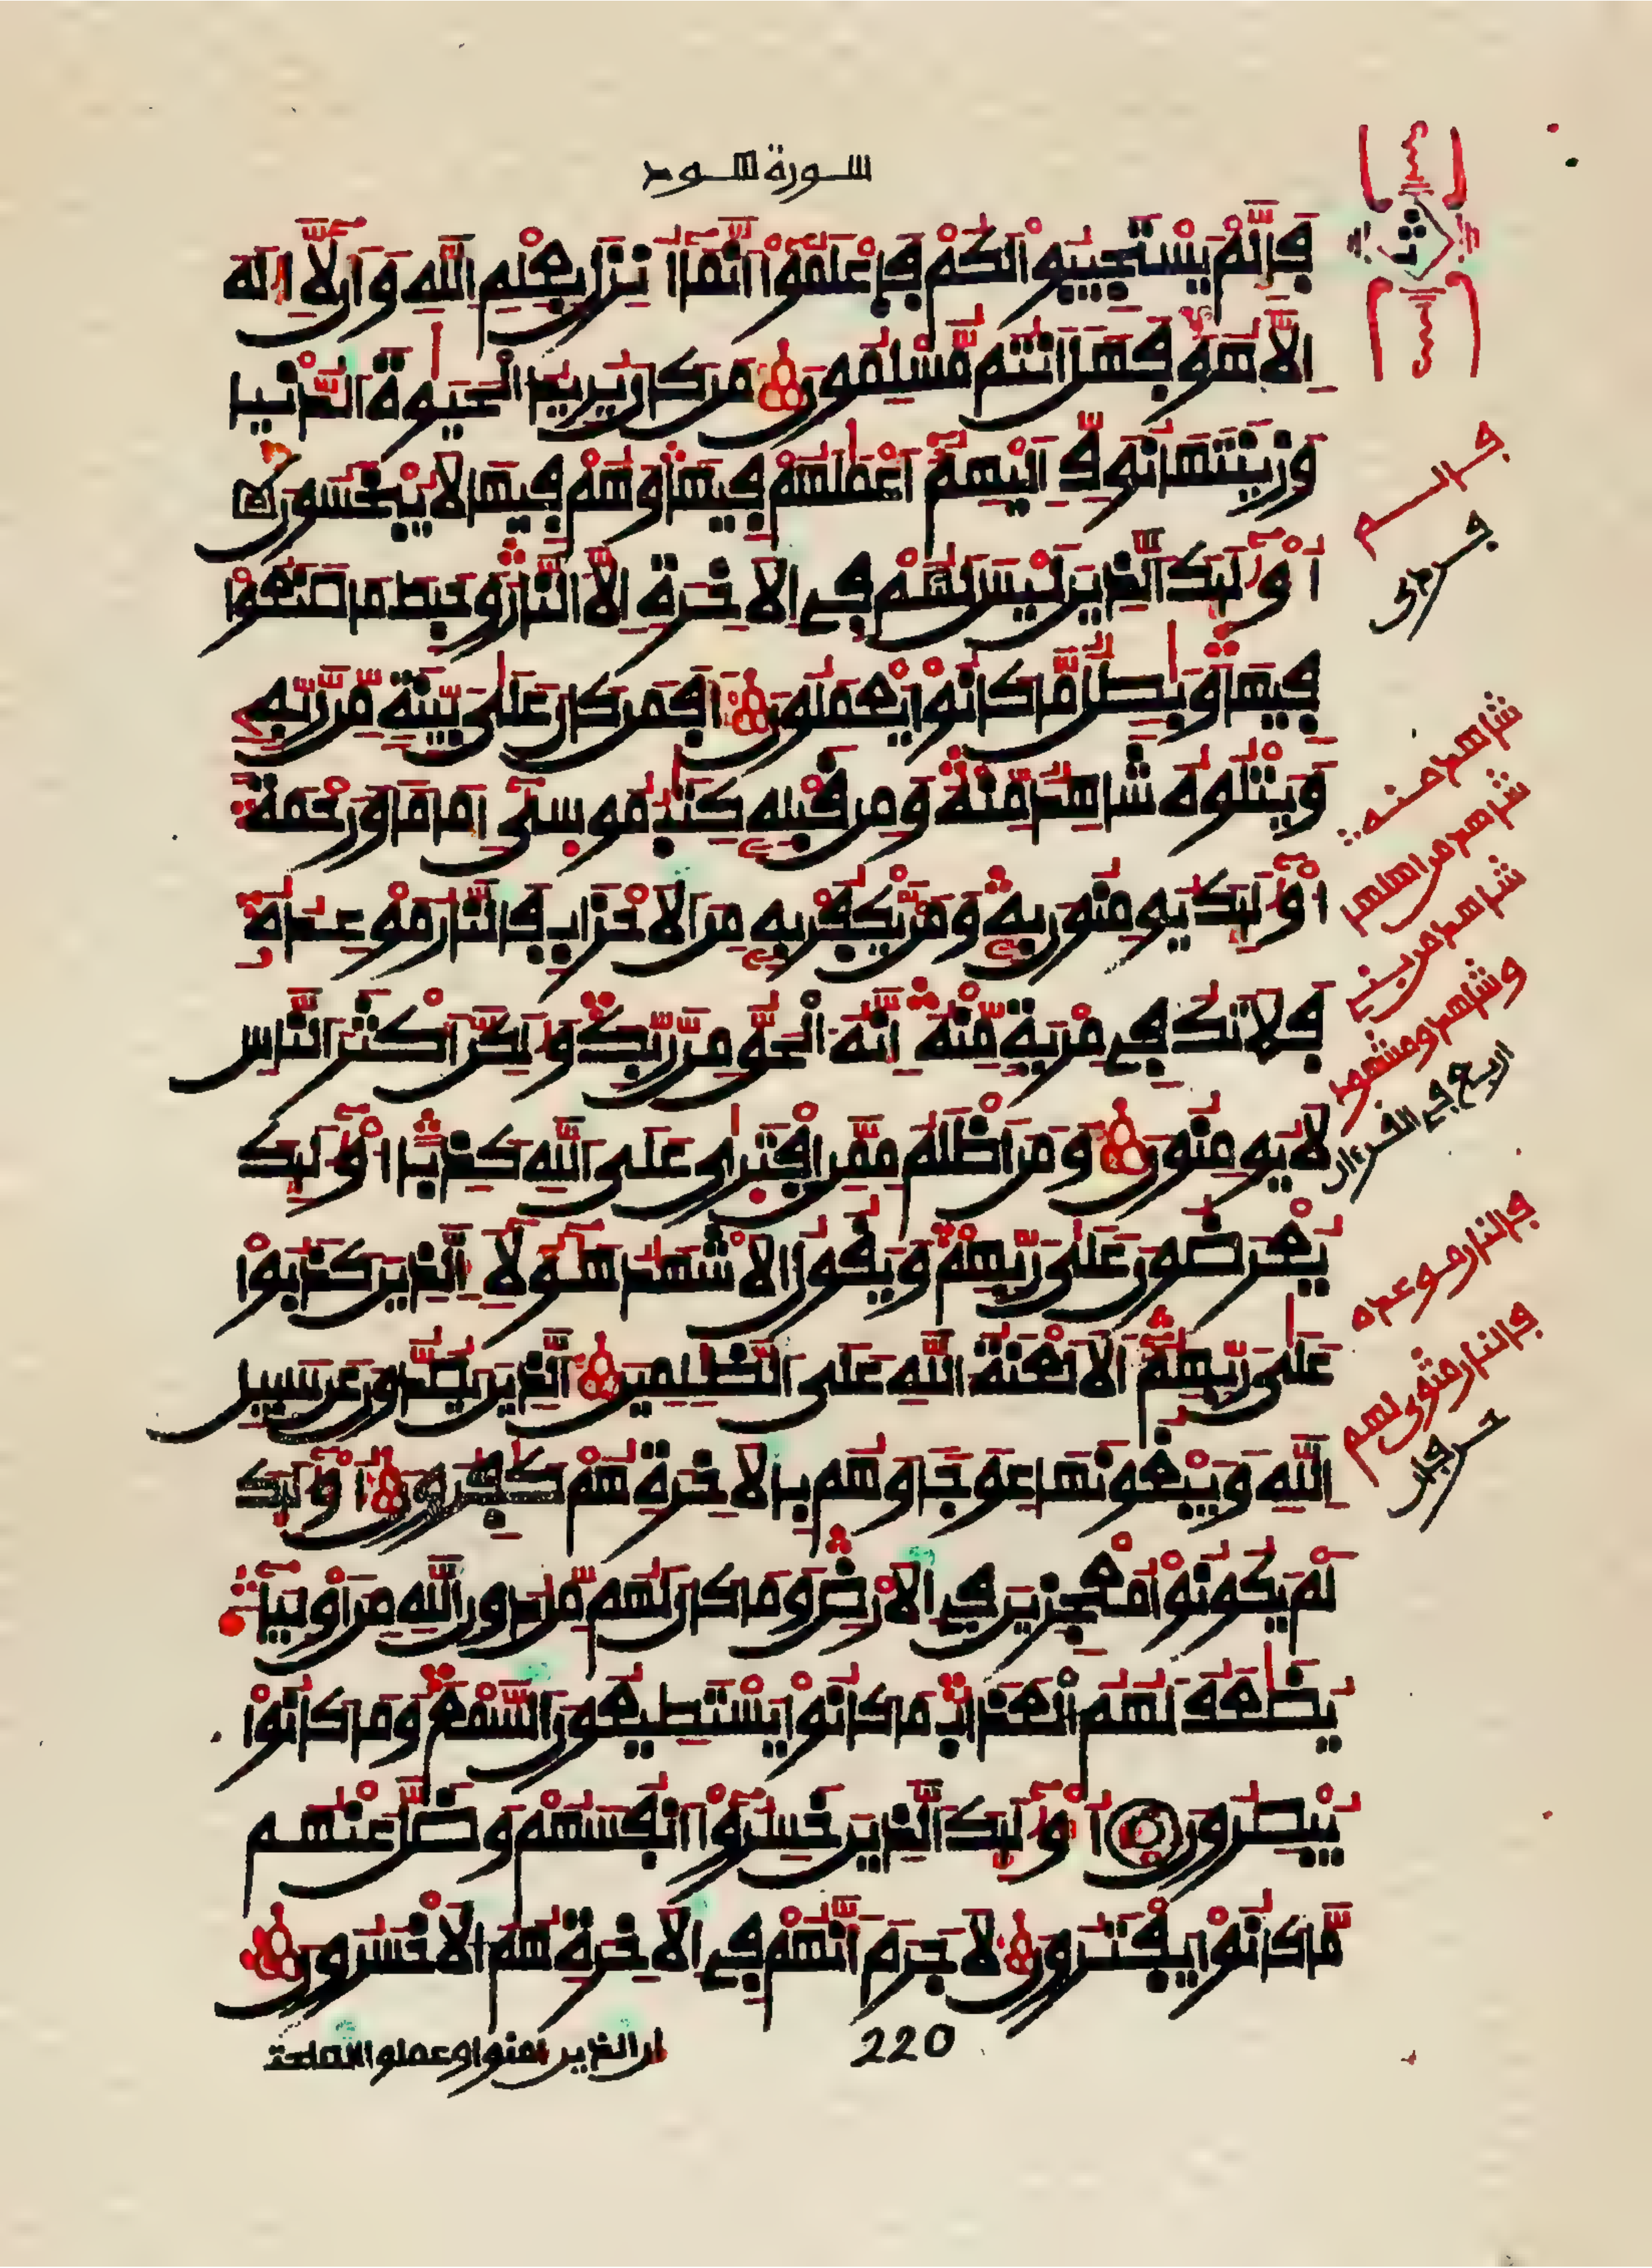 سورة هود
فَإِلَّمْ يَسْتَجِيبُواْ لَكُمْ فَاعْلَمُواْ أَنَّمَا أُنزِلَ بِعِلْمِ اللَّهِ وَأَن لَّا إِلَهَ
إِلَّا هُوَ فَهَلْ أَنتُم مُّسْلِمُونَ مَن كَانَ يُرِيدُ الْحَيَوٰةَ الدُّنْيَا
وَزِينَتَهَا نُوَفِّ إِلَيْهِمُ أَعْمَٰلَهُمْ فِيهَا وَهُمْ فِيهَا لَا يُبْخَسُونَ
أُوْلَٰئِكَ الَّذِينَ لَيْسَ لَهُمْ فِي الْأَخِرَةِ إِلَّا النَّارُ وَحَبِطَ مَا صَنَعُواْ
فِيهَا وَبَٰطِلٌ مَّا كَانُواْ يَعْمَلُونَ أَفَمَن كَانَ عَلَىٰ بَيِّنَةٍ مِّن رَّبِّهِ
وَيَتْلُوهُ شَاهِدٌ مِّنْهُ وَمِن قَبْلِهِ كِتَٰبُ مُوسَىٰ إِمَامًا وَرَحْمَةً
أُوْلَٰئِكَ يُومِنُونَ بِهِ وَمَن يَكْفُرْ بِهِ مِنَ الْأَحْزَابِ فَالنَّارُ مَوْعِدُهُ
فَلَا تَكُ فِي مِرْيَةٍ مِّنْهُ إِنَّهُ الْحَقُّ مِن رَّبِّكَ وَلَٰكِنَّ أَكْثَرَ النَّاسِ
لَا يُومِنُونَ وَمَنْ أَظْلَمُ مِمَّنِ افْتَرَىٰ عَلَى اللَّهِ كَذِبًا أُوْلَٰئِكَ
يُعْرَضُونَ عَلَىٰ رَبِّهِمْ وَيَقُولُ الْأَشْهَٰدُ هَٰؤُلَاءِ الَّذِينَ كَذَبُواْ
عَلَىٰ رَبِّهِمُ أَلَا لَعْنَةُ اللَّهِ عَلَى الظَّٰلِمِينَ الَّذِينَ يَصُدُّونَ عَن سَبِيلِ
اللَّهِ وَيَبْغُونَهَا عِوَجًا وَهُم بِالْأَخِرَةِ هُمْ كَٰفِرُونَ أُوْلَٰئِكَ
لَمْ يَكُونُواْ مُعْجِزِينَ فِي الْأَرْضِ وَمَا كَانَ لَهُم مِّن دُونِ اللَّهِ مِنْ أَوْلِيَاءَ
يُضَٰعَفُ لَهُمُ الْعَذَابُ مَا كَانُواْ يَسْتَطِيعُونَ السَّمْعَ وَمَا كَانُواْ
يُبْصِرُونَ أُوْلَٰئِكَ الَّذِينَ خَسِرُواْ أَنفُسَهُمْ وَضَلَّ عَنْهُم
مَّا كَانُواْ يَفْتَرُونَ لَا جَرَمَ أَنَّهُمْ فِي الْأَخِرَةِ هُمُ الْأَخْسَرُونَ
220
ان الذين امنوا وعملوا الصلحت
فالم
شاهد منه
شاهد من اهلها
شاهد من بني
وشاهد ومشهود
اربع في القرءان
فالنار موعده
فالنار مثوى لهم
حرفان